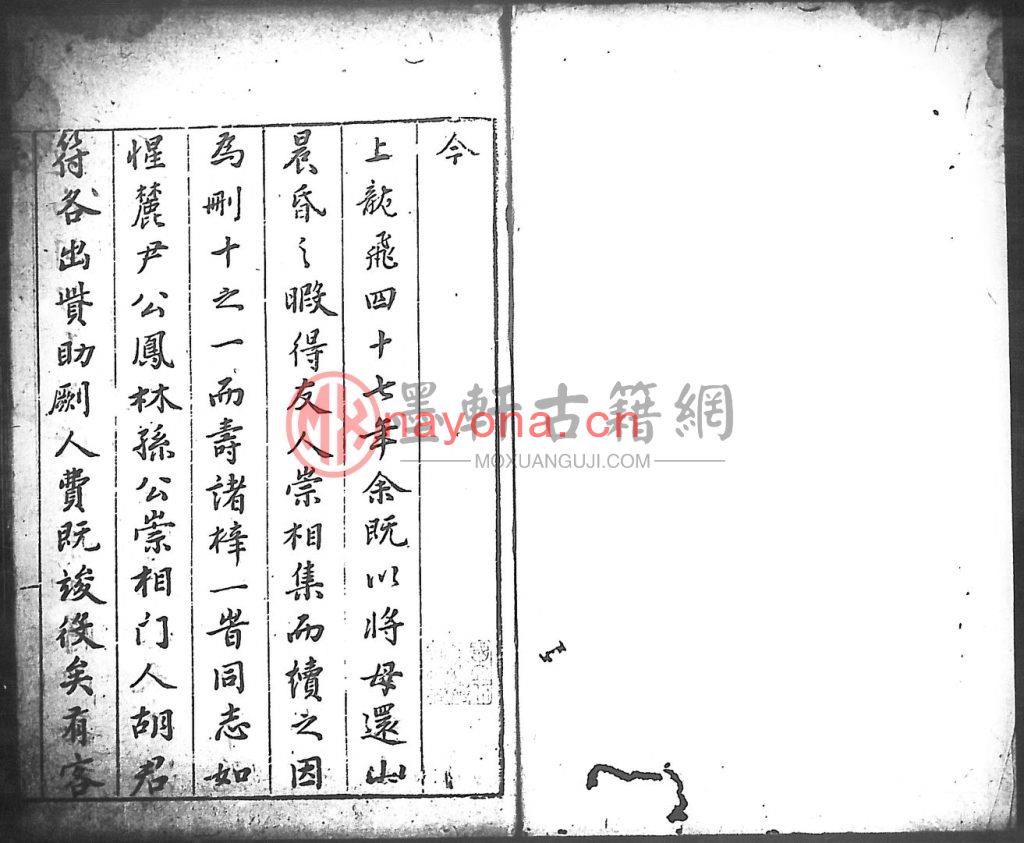 今
上龍飛四十七年余既以將母還山
晨昏之暇得友人崇相集而櫝之因
為刪十之一而壽諸梓一時同志如
惺麓尹公鳳林孫公崇相门人胡君
符各出貲助劂人費既竣役矣有客
墨軒古籍網
nayona.cn
MOXUANGUJI.COM